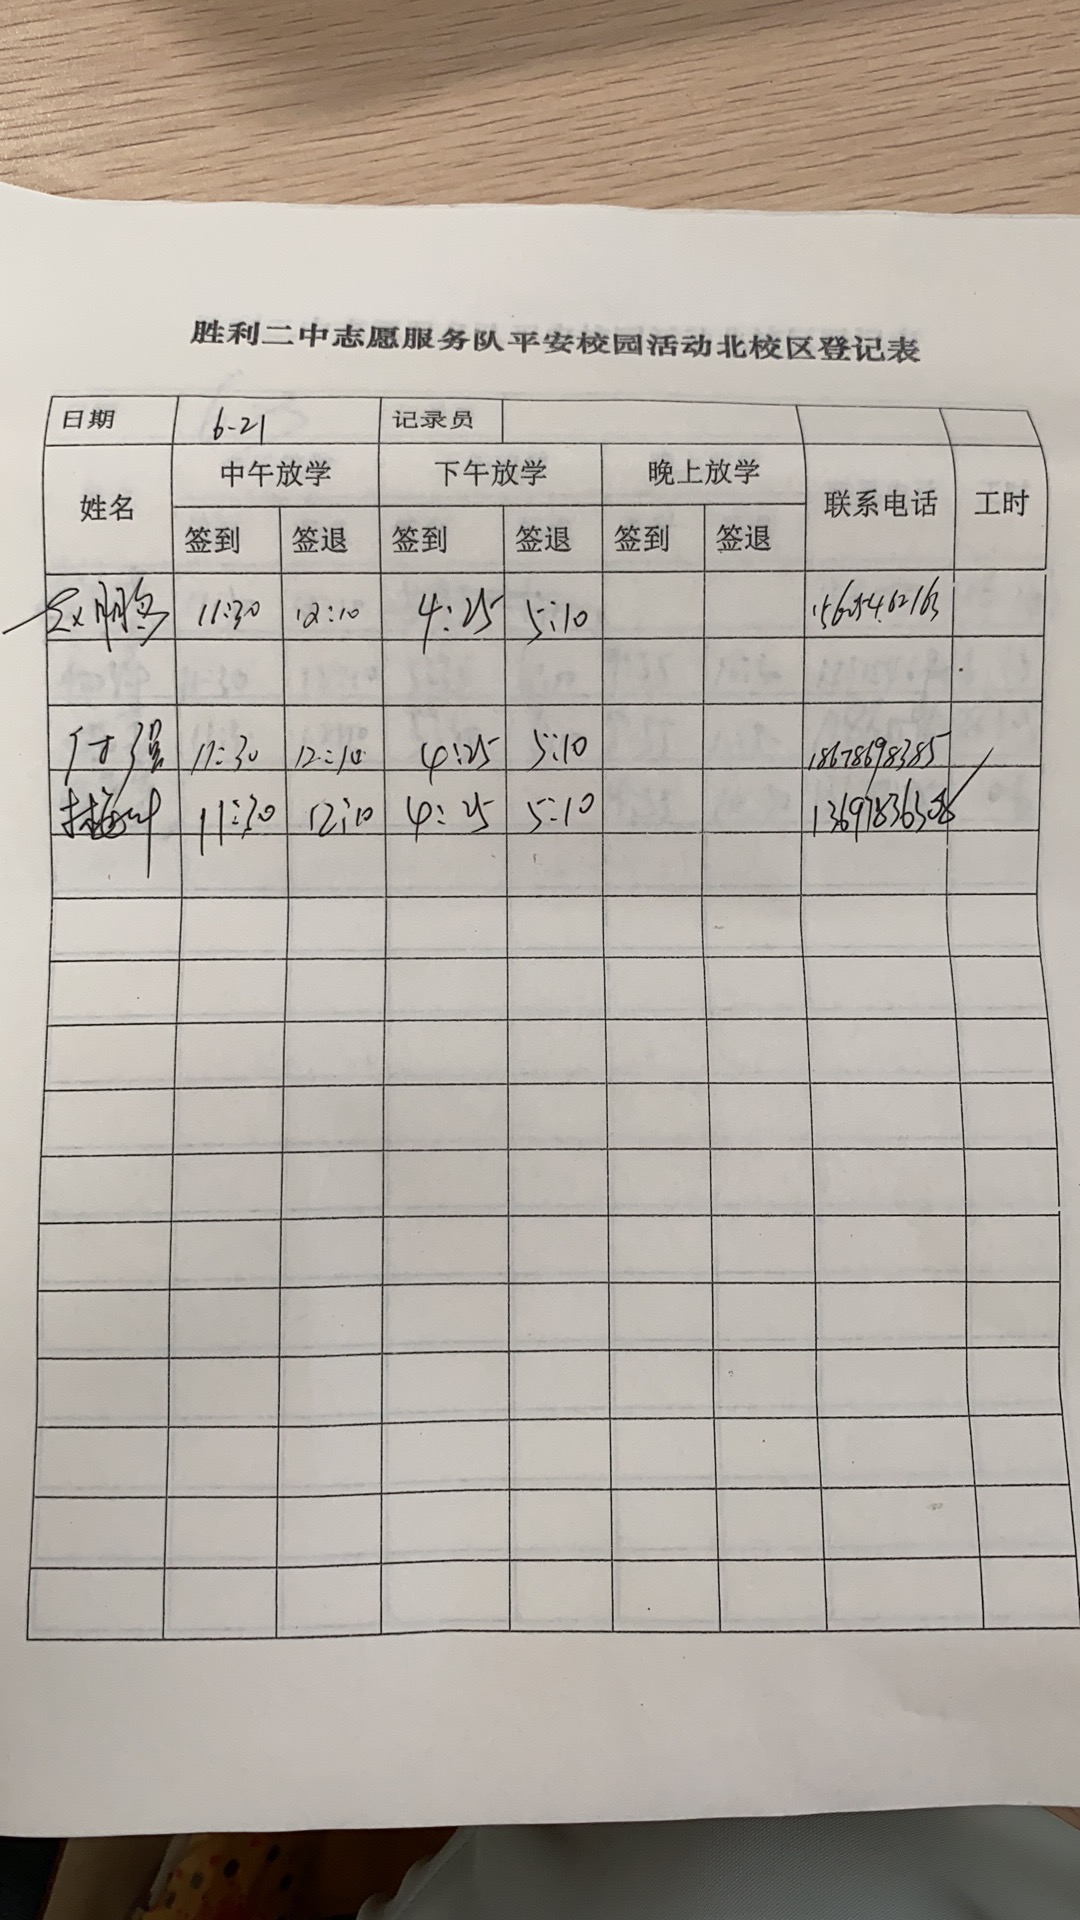 胜利二中志愿服务队平安校园活动北校区登记表
日期 6-21 记录员
姓名 中午放学 下午放学 晚上放学 联系电话 工时
签到 签退 签到 签退 签到 签退
赵鹏 11:30 12:10 4:25 5:10
付强 11:30 12:10 4:25 5:10 18678698385
11:30 12:10 4:25 5:10